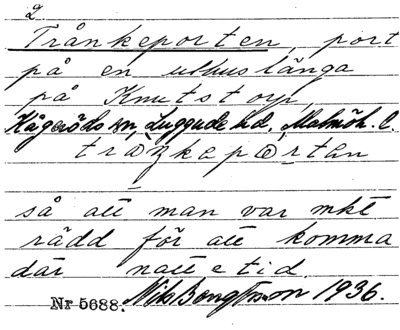 2
Trånkeporten, port
på en uthuslänga
på Knutstorp,
Kågeröds sn, Luggude hd, Malmöh. l.
så att man var mkt
rädd för att komma
där nattetid.
Nr 5688. Nils Bengtsson 1936.